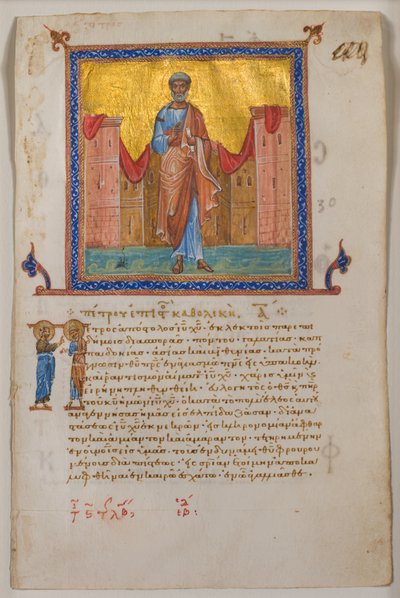 ΠΕΤΡΟΥ ΕΠΙϹΤ ΚΑΘΟΛΙΚΗ Α
Πέτρος ἀπόστολος ἰυ χυ· ἐκλεκτοῖς παρεπι
δήμοις διασπορᾶς· πόντου· γαλατίας· καπ
παδοκίας· ἀσίας καὶ βιθυνίας· κατὰ πρό
γνωσιν θυ πρς ἐν ἁγιασμῷ πνς· εἰς ὑπακοὴν
καὶ ῥαντισμὸν αἵματος ἰυ χυ· χάρις ὑμῖν
καὶ εἰρήνη πληθυνθείη· εὐλογητὸς ὁ θς καὶ πηρ
τοῦ κυ ἡμῶν ἰυ χυ· ὁ κατὰ τὸ πολὺ ἔλεος αὐτοῦ
ἀναγεννήσας ἡμᾶς εἰς ἐλπίδα ζῶσαν· δι' ἀνα
στάσεως ἰυ χυ ἐκ νεκρῶν· εἰς κληρονομίαν ἄφθαρ
τον καὶ ἀμίαντον καὶ ἀμάραντον· τετηρημένην
ἐν οὐνοῖς εἰς ὑμᾶς· τοὺς ἐν δυνάμει θυ φρουρου
μένους διὰ πίστεως· εἰς σρίαν ἑτοίμην ἀποκα
λυφθῆναι ἐν καιρῷ ἐσχάτῳ· ἐν ᾧ ἀγαλλιᾶσθε·